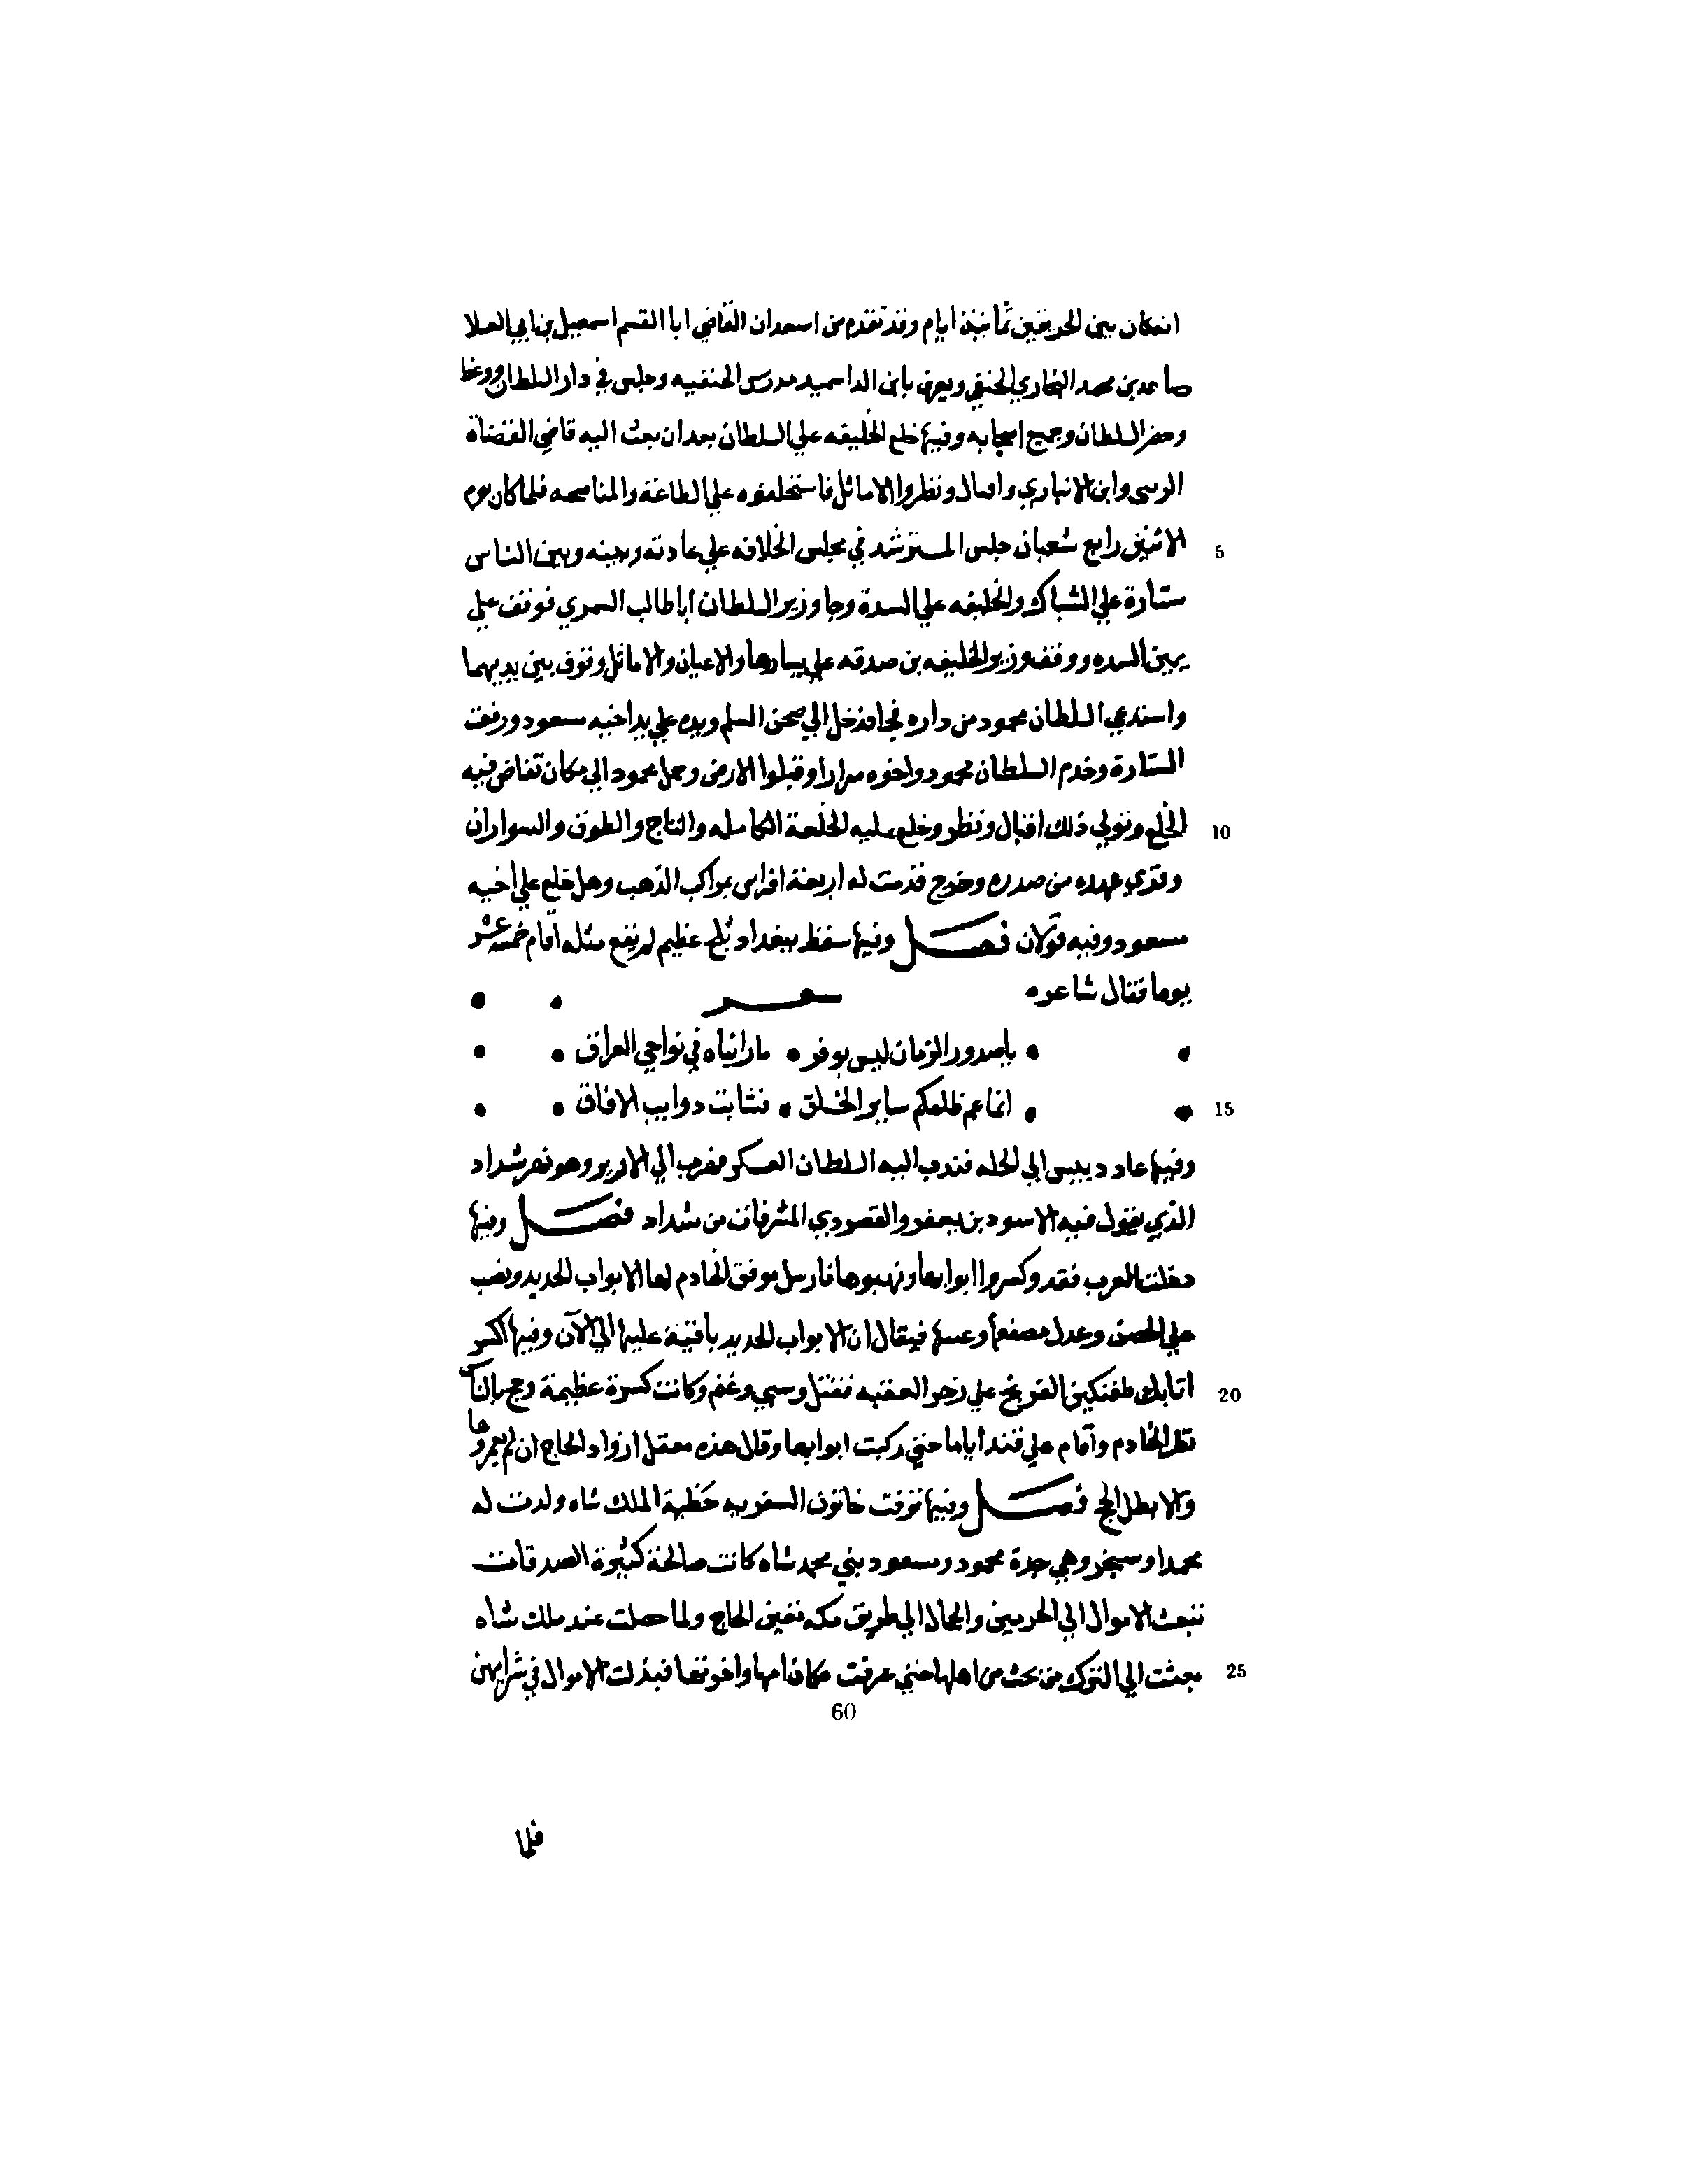 انه كان بين الحريقين ثمانية ايام وقد تقدم من اسعد ان القاضي ابا القسم اسمعيل بن ابي العلا
صاعد بن محمد البخاري الحنفي ويعرف بابن الداسميد مدرس الحنفيه وجلس في دار السلطان ووعظ
وحضر السلطان وجميع اصحابه وفيها خلع الخليفه علي السلطان بعد ان بعث اليه قاضي القضاة
الرسي وابن الانباري واقبال ونظر والاماثل فاستحلفوه علي الطاعة والمناصحه فلما كان يوم
الاثنين رابع شعبان جلس المسترشد في مجلس الخلافه علي عادته وبينه وبين الناس
5
ستارة علي الشباك والخليفه علي السدة وجا وزير السلطان ابا طالب السمري فوقف علي
يمين السده ووقف وزير الخليفه بن صدقه علي يسارها والاعيان والاماثل وقوف بين يديهما
واستدعي السلطان محمود من داره فجا فدخل الي صحن السلم ويده علي يد اخيه مسعود ورفعت
الستارة وخدم السلطان محمود واخوه مرارا وقبلوا الارض وحمل محمود الي مكان تفاض فيه
الخلع وتولي ذلك اقبال ونظر وخلع عليه الخلعة الكامله والتاج والطوق والسواران
10
وقري عهده من صدره وخرج قدمت له اربعة افراس بمراكب الذهب وهل خلع علي اخيه
مسعود وفيه قولان فصل وفيها سقط ببغداد ثلج عظيم لم يقع مثله اقام خمسة عشر
يوما فقال شاعر شعر
ياصدور الزمان ليس بوفر ما رايناه في نواحي العراق
انما عم ظلمكم ساير الخلق فشابت دوايب الافاق
15
وفيها عاد دبيس الي الحله فندب اليه السلطان العسكر فهرب الي الازيز وهو نهر شداد
الذي يقول فيه الاسود بن يعفر والقصور دي المشرفات من شداد فصل وفيها
دخلت العرب فقد وكسروا ابوابها ونهبوها فارسل موفق الخادم لها الابواب الحديد ونصب
علي الحصن وعدل مصنعها فيقال ان الابواب الحديد باقية عليها الي الآن وفيها اكسر
اتابك طغتكين الفرنج علي زحر العقبه فقتل وسبي وغنم وكانت كسرة عظيمة وحج بالناس
20
نظر الخادم واقام علي فند اياما حتي ركبت ابوابها وقال هذه معقل ازواد الحاج ان لم يعمروها
والا بطل الحج فصل وفيها توفت خاتون السفريه حظية الملك شاه ولدت له
محمدا وسنجر وهي جدة محمود ومسعود بني محمد شاه كانت صالحة كثيرة الصدقات
تبعث الاموال الي الحرمين والجمال الي طريق مكه تعين الحاج ولما حصلت عند ملك شاه
بعثت الي الترك من بحث من اهلها حتي عرفت مكان امها واخوتها فبذلت الاموال في شرايهن
25
60
فلما